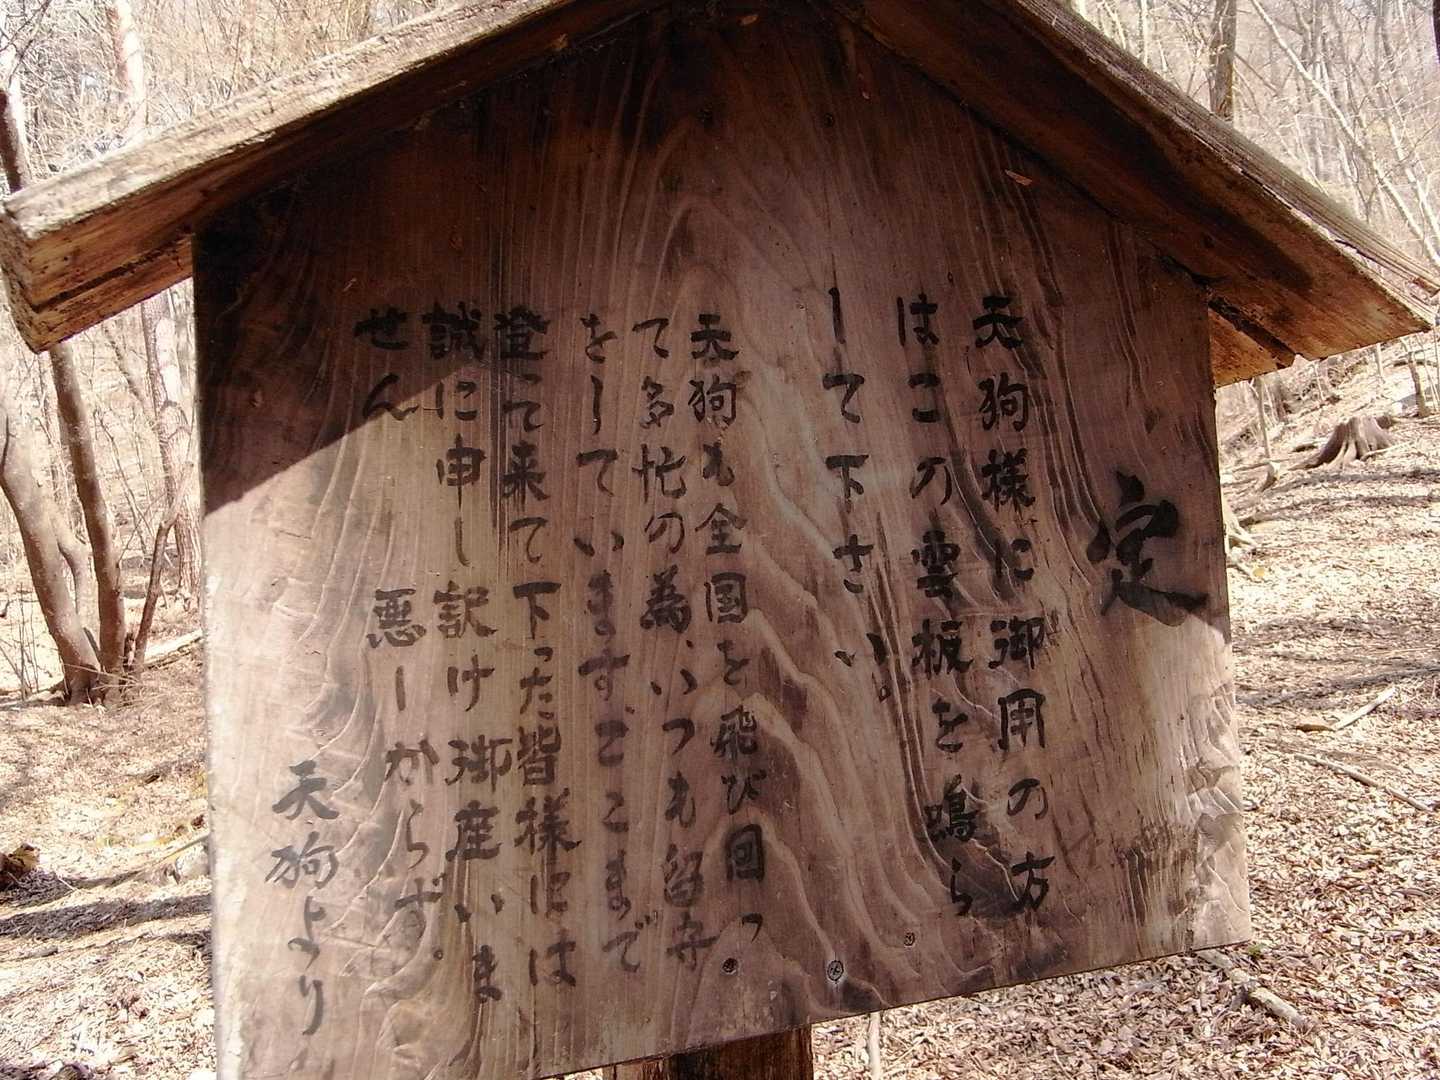 定
天狗様に御用の方
はこの雲板を鳴ら
して下さい。
天狗も全国を飛び回っ
て多忙の為、いつも留守
をしていますここまで
登って来て下った皆様には
誠に申し訳け御座いま
せん 悪しからず。
天狗より